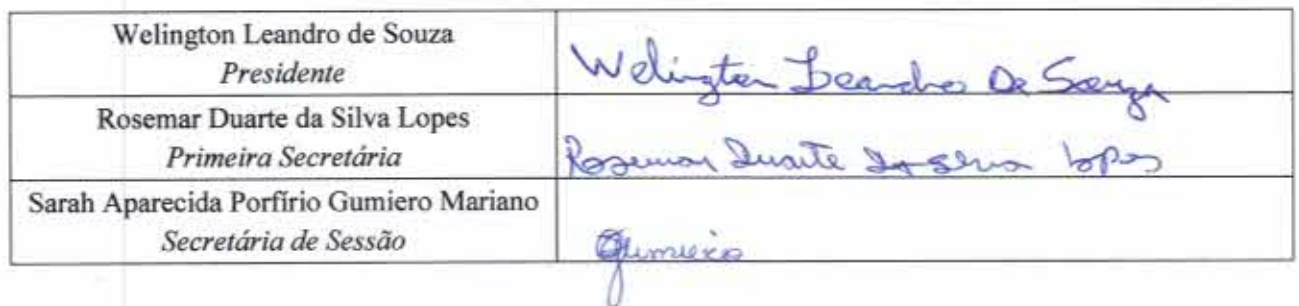 Welington Leandro de Souza
Presidente
Welington Leandro De Souza
Rosemar Duarte da Silva Lopes
Primeira Secretária
Rosemar Duarte da Silva Lopes
Sarah Aparecida Porfírio Gumiero Mariano
Secretária de Sessão
Gumiero